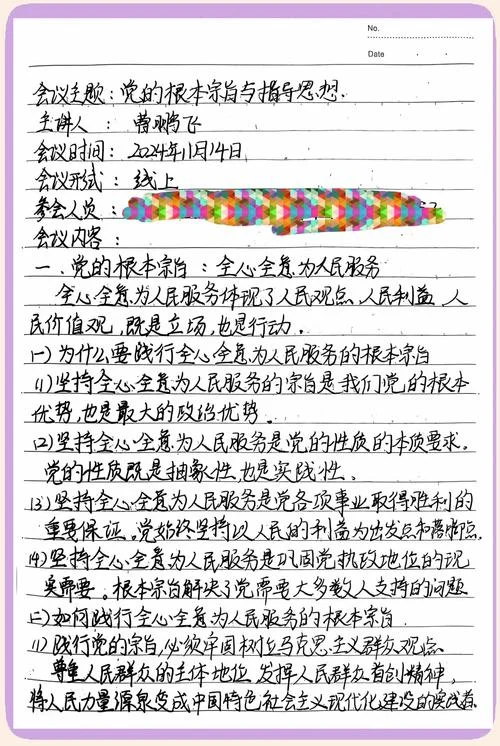 No.
Date
会议主题：党的根本宗旨与指导思想.
主讲人 ：曹鹏飞
会议时间：2024年11月14日
会议形式：线上
参会人员：
会议内容：
一、党的根本宗旨：全心全意为人民服务
全心全意为人民服务体现了人民观点、人民利益、人
民价值观，既是立场，也是行动。
一)为什么要践行全心全意为人民服务的根本宗旨
(1)坚持全心全意为人民服务的宗旨是我们党的根本
优势，也是最大的政治优势。
(2)坚持全心全意为人民服务是党的性质的本质要求。
党的性质既是抽象性也是实践性。
(3)坚持全心全意为人民服务是党各项事业取得胜利的
重要保证。党始终坚持以人民的利益为出发点和落脚点。
(4)坚持全心全意为人民服务是巩固党执政地位的现
实需要。根本宗旨解决了党需要大多数人支持的问题
二)如何践行全心全意为人民服务的根本宗旨
(1)践行党的宗旨，必须牢固树立马克思主义群众观点
尊重人民群众的主体地位，发挥人民群众首创精神，
将人民力量源泉变成中国特色社会主义现代化建设的实践者.